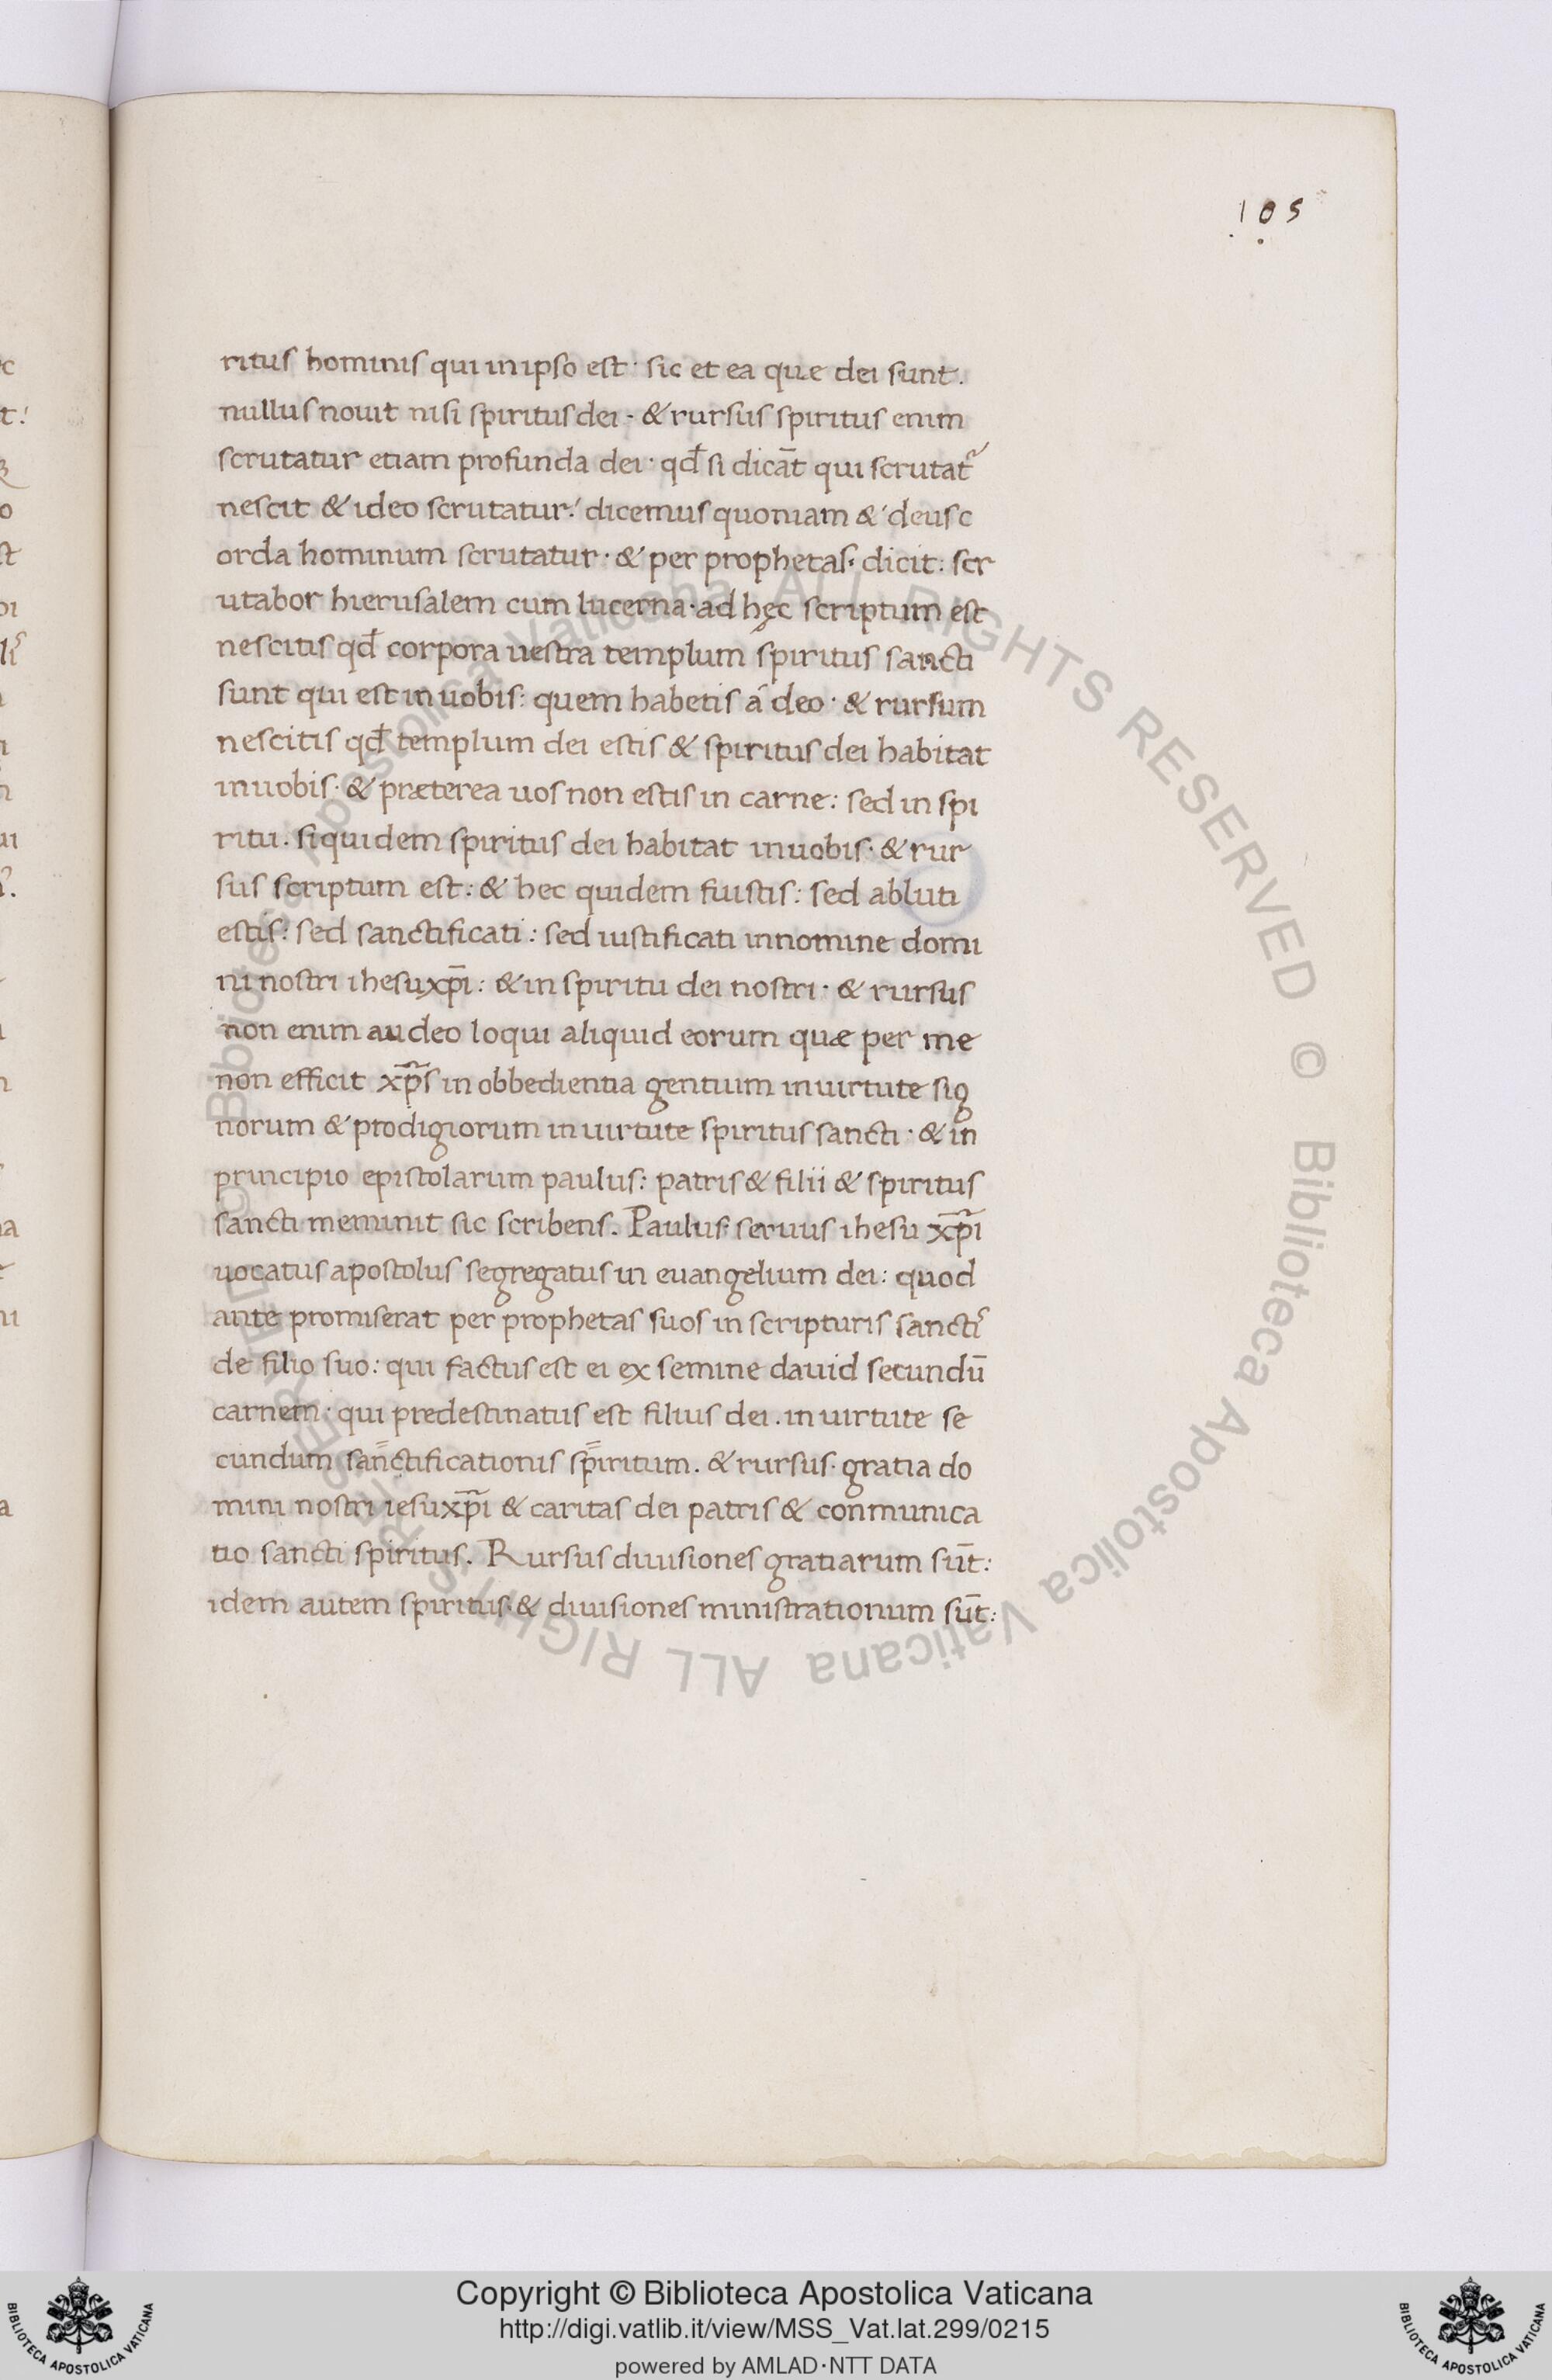 105
ritus hominis qui in ipso est· sic et ea que dei sunt.
nullus nouit nisi spiritus dei - & rursus spiritus enim
scrutatur etiam profunda dei· qđ si dicāt qui scrutat᷑
nescit & ideo scrutatur:́ dicemus quoniam & deus c
orda hominum scrutatur· & per prophetas· dicit: scr
utabor hierusalem cum lucerna· ad hęc scriptum est
nescitis qđ corpora uestra templum spiritus sancti
sunt qui est in uobis: quem habetis á deo· & rursum
nescitis qđ templum dei estis & spiritus dei habitat
in uobis· & præterea uos non estis in carne: sed in spi
ritu. siquidem spiritus dei habitat in uobis· & rur
sus scriptum est: & hec quidem fuistis: sed abluti
estis: sed sanctificati: sed iustificati in nomine domi
ni nostri ihesu xp̄i: & in spiritu dei nostri· & rursus
non enim audeo loqui aliquid eorum quæ per me
non efficit xp̄s in obbedientia gentium in uirtute sig
norum & prodigiorum in uirtute spiritus sancti· & in
principio epistolarum paulus: patris & filii & spiritus
sancti meminit sic scribens. Paulus seruus ihesu xp̄i
uocatus apostolus segregatus in euangelium dei: quod
ante promiserat per prophetas suos in scripturis sanctiˢ
de filio suo: qui factus est ei ex semine dauid secundū
carnem· qui predestinatus est filius dei. in uirtute se
cundum sanctificationis spiritum. & rursus· gratia do
mini nostri iesu xp̄i & caritas dei patris & conmunica
tio sancti spiritus. Rursus diuisiones gratiarum sūt:
idem autem spiritus· & diuisiones ministrationum sūt:
© Biblioteca Apostolica Vaticana ALL RIGHTS RESERVED © Biblioteca Apostolica Vaticana ALL RIGHTS RESERVED
Copyright © Biblioteca Apostolica Vaticana
http://digi.vatlib.it/view/MSS_Vat.lat.299/0215
powered by AMLAD·NTT DATA
BIBLIOTECA APOSTOLICA VATICANA
BIBLIOTECA APOSTOLICA VATICANA